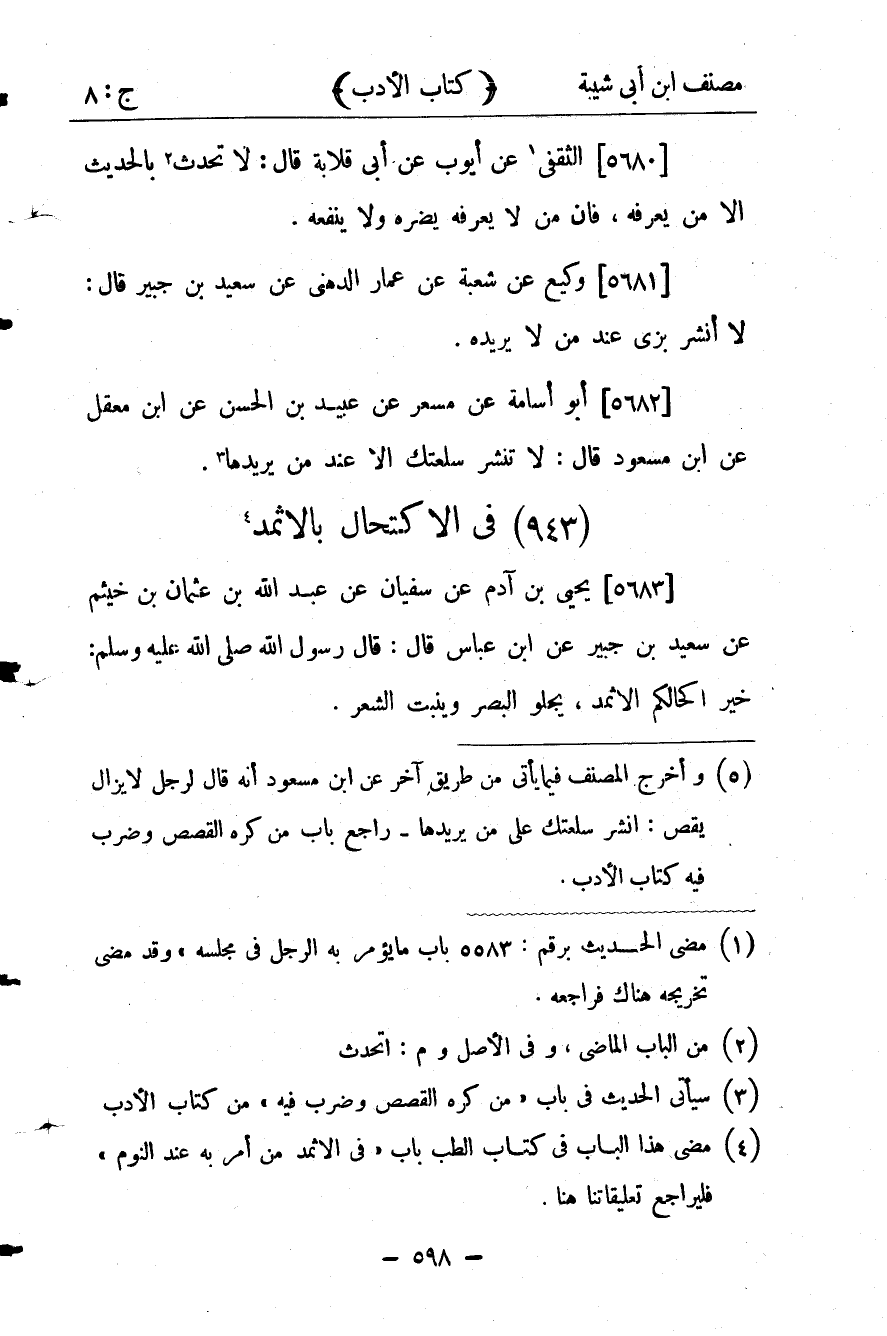 مصنف ابن أبى شيبة ﴿ كتاب الأدب ﴾ ج : ٨
[٥٦٨٠] الثقفى١ عن أيوب عن أبى قلابة قال : لا تحدث٢ بالحديث
الا من يعرفه ، فان من لا يعرفه يضره ولا ينفعه .
[٥٦٨١] وكيع عن شعبة عن عمار الدهنى عن سعيد بن جبير قال :
لا أنشر بزى عند من لا يريده .
[٥٦٨٢] أبو أسامة عن مسعر عن عبيد بن الحسن عن ابن معقل
عن ابن مسعود قال : لا تنشر سلعتك الا عند من يريدها٣ .
(٩٤٣) فى الاكتحال بالاثمد٤
[٥٦٨٣] يحيى بن آدم عن سفيان عن عبد الله بن عثمان بن خيثم
عن سعيد بن جبير عن ابن عباس قال : قال رسول الله صلى الله عليه وسلم:
خير اكحالكم الاثمد ، يجلو البصر وينبت الشعر .
(٥) و أخرج المصنف فيما يأتى من طريق آخر عن ابن مسعود أنه قال لرجل لايزال
يقص : انشر سلعتك على من يريدها ـ راجع باب من كره القصص وضرب
فيه كتاب الأدب .
(١) مضى الحديث برقم : ٥٥٨٣ باب مايؤمر به الرجل فى مجلسه » وقد مضى
تخريجه هناك فراجعه .
(٢) من الباب الماضى ، و فى الأصل و م : اتحدث
(٣) سيأتى الحديث فى باب « من كره القصص وضرب فيه » من كتاب الأدب
(٤) مضى هذا الباب فى كتاب الطب باب « فى الاثمد من أمر به عند النوم »
فليراجع تعليقاتنا هنا .
– ٥٩٨ –